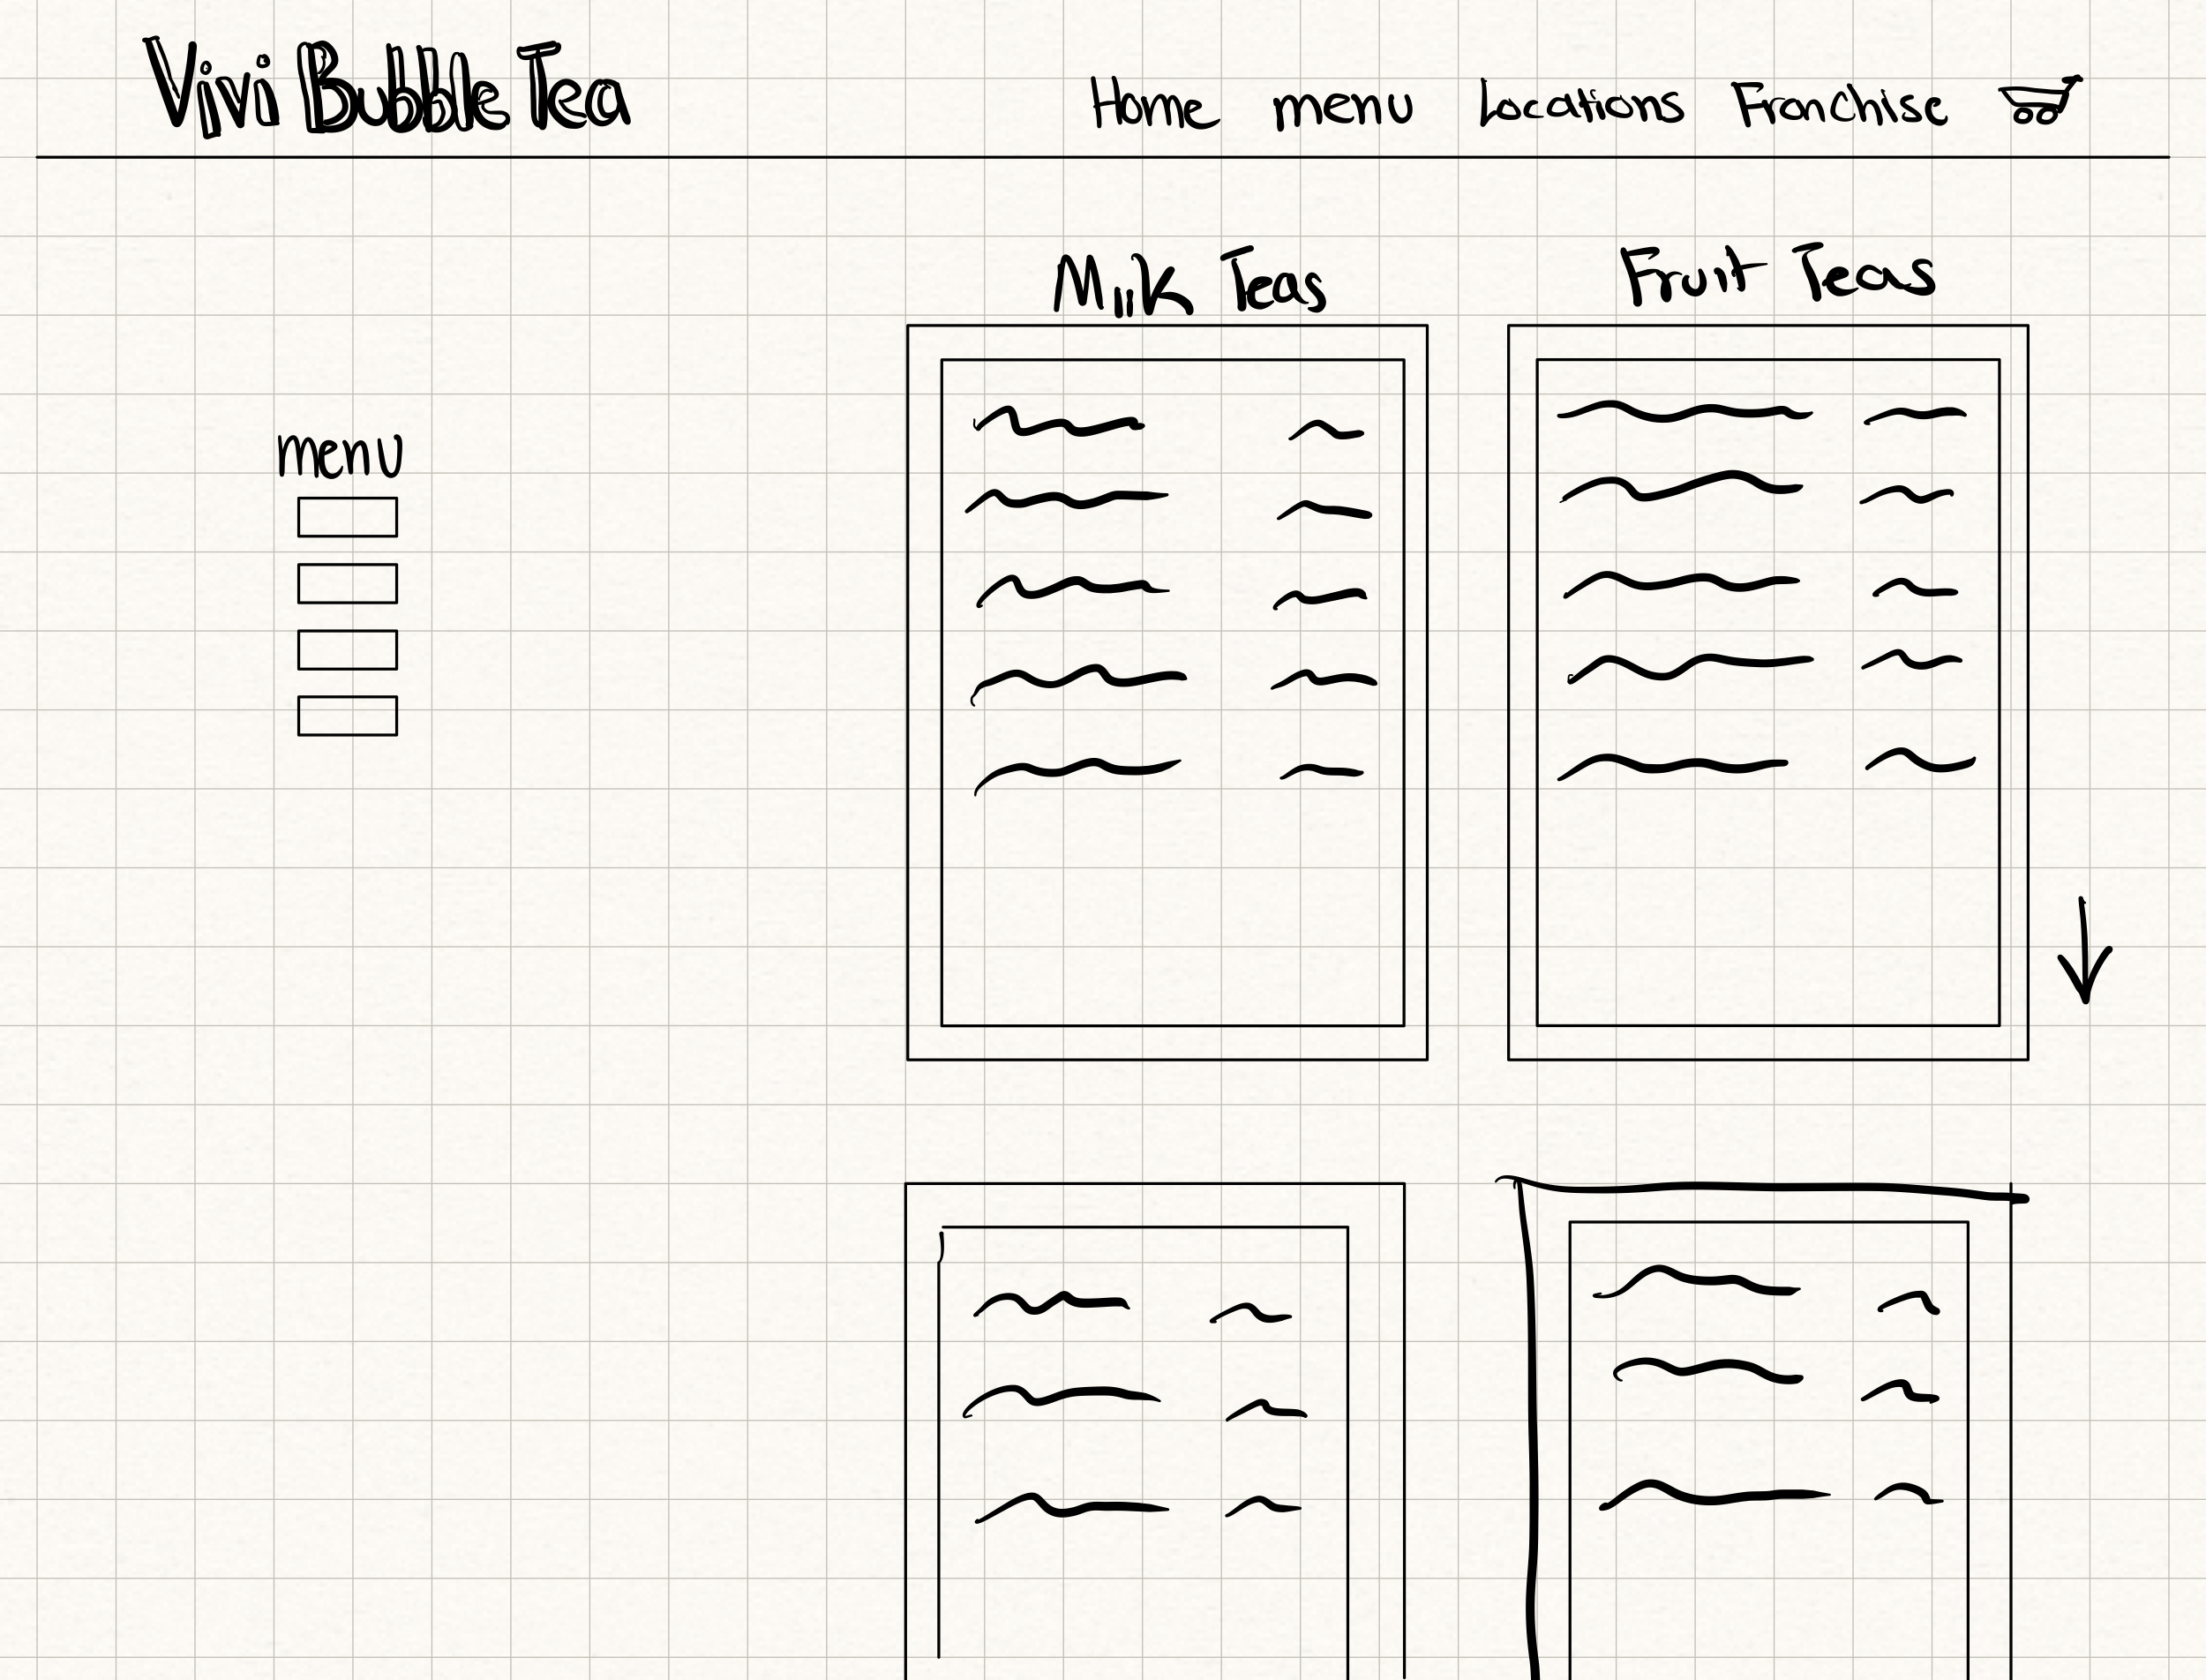 Vivi Bubble Tea
Home menu Locations Franchise
Milk Teas
Fruit Teas
menu